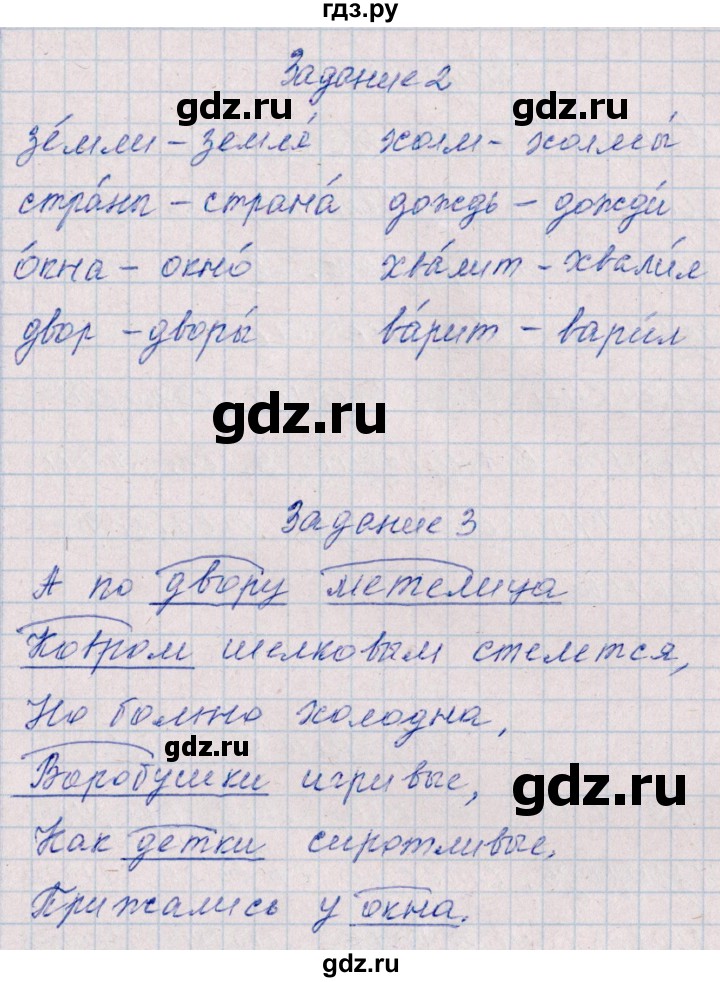 гдз.ру
Задание 2
gdz.ru gdz.ru
зе́мли - земля́ холм - холмы́
стра́ны - страна́ дождь - дожди́
о́кна - окно́ хва́лит - хвали́л
двор - дворы́ ва́рит - вари́л
gdz.ru
Задание 3
А по двору метелица
Ковром шелковым стелется,
Но больно холодна,
gdz.ru
Воробушки игривые,
gdz.ru
Как детки сиротливые,
Прижались у окна.
gdz.ru